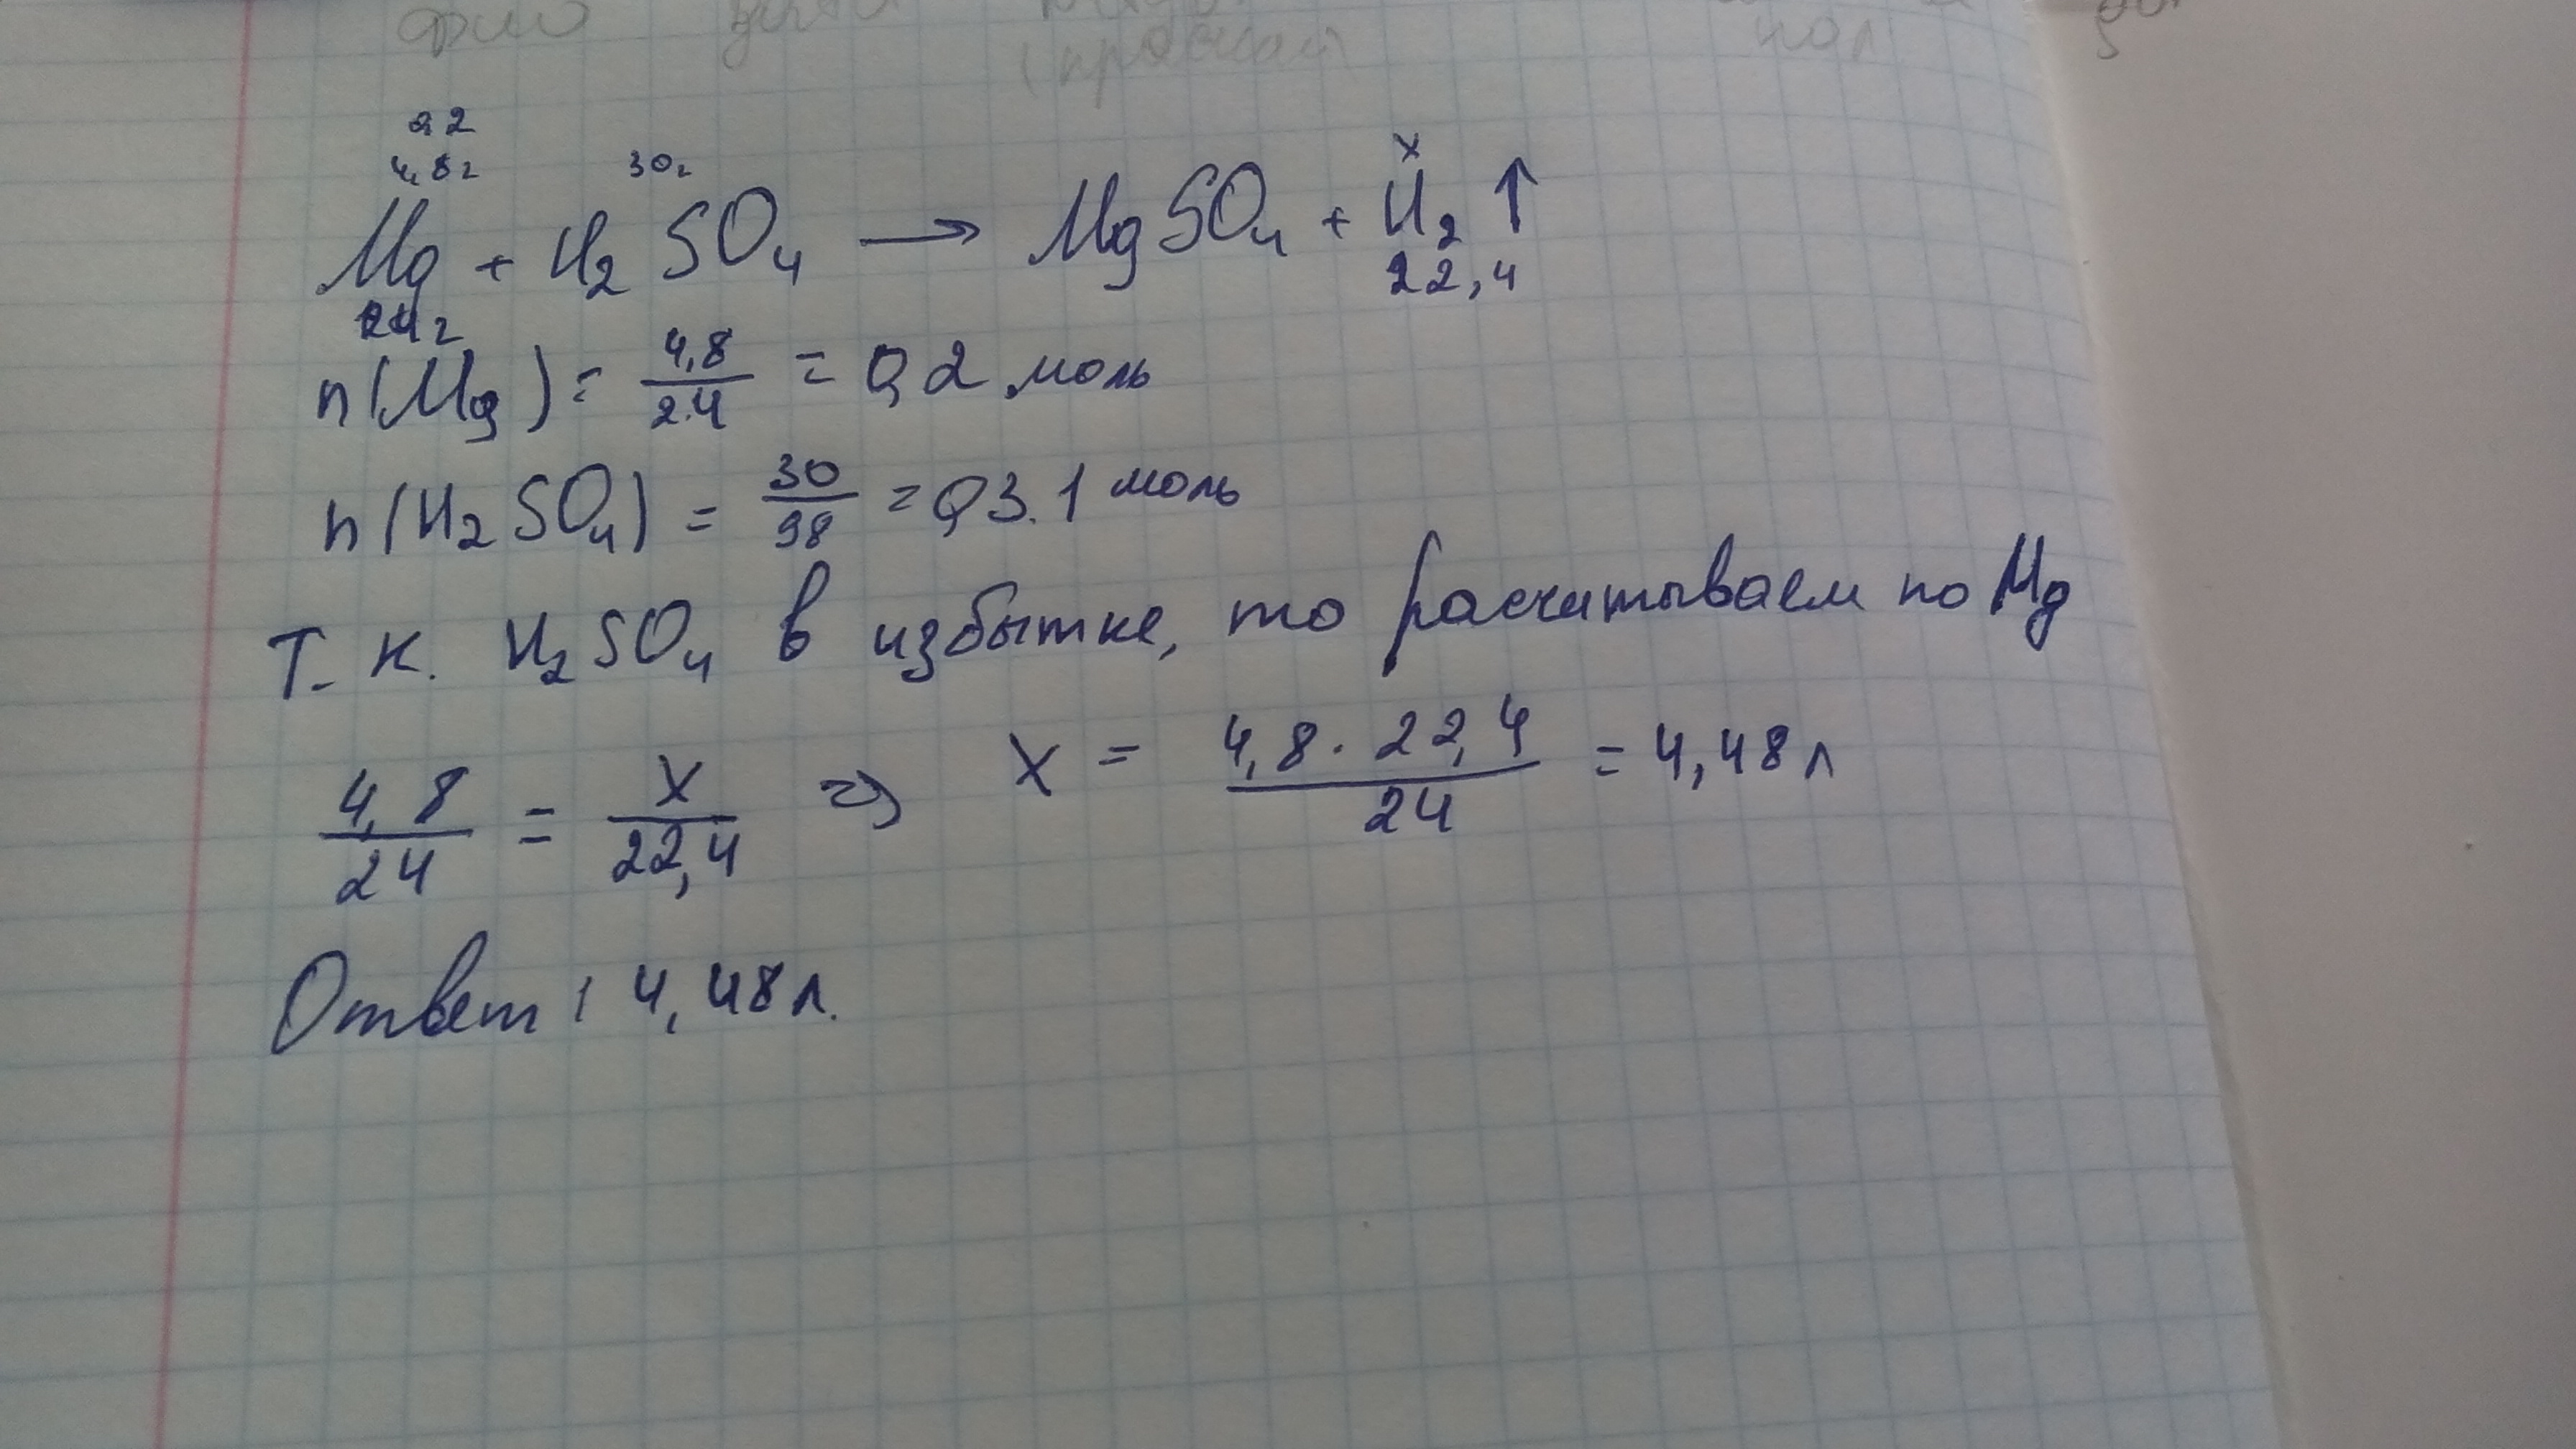 (красная
0,2
4,8г 30г x
Mg + H₂SO₄ → MgSO₄ + H₂↑
24г 22,4
n(Mg) = 4,8/24 = 0,2 моль
n(H₂SO₄) = 30/98 = 0,31 моль
Т.к. H₂SO₄ в избытке, то расчитываем по Mg
4,8/24 = x/22,4 => x = 4,8·22,4/24 = 4,48л
Ответ: 4,48л.